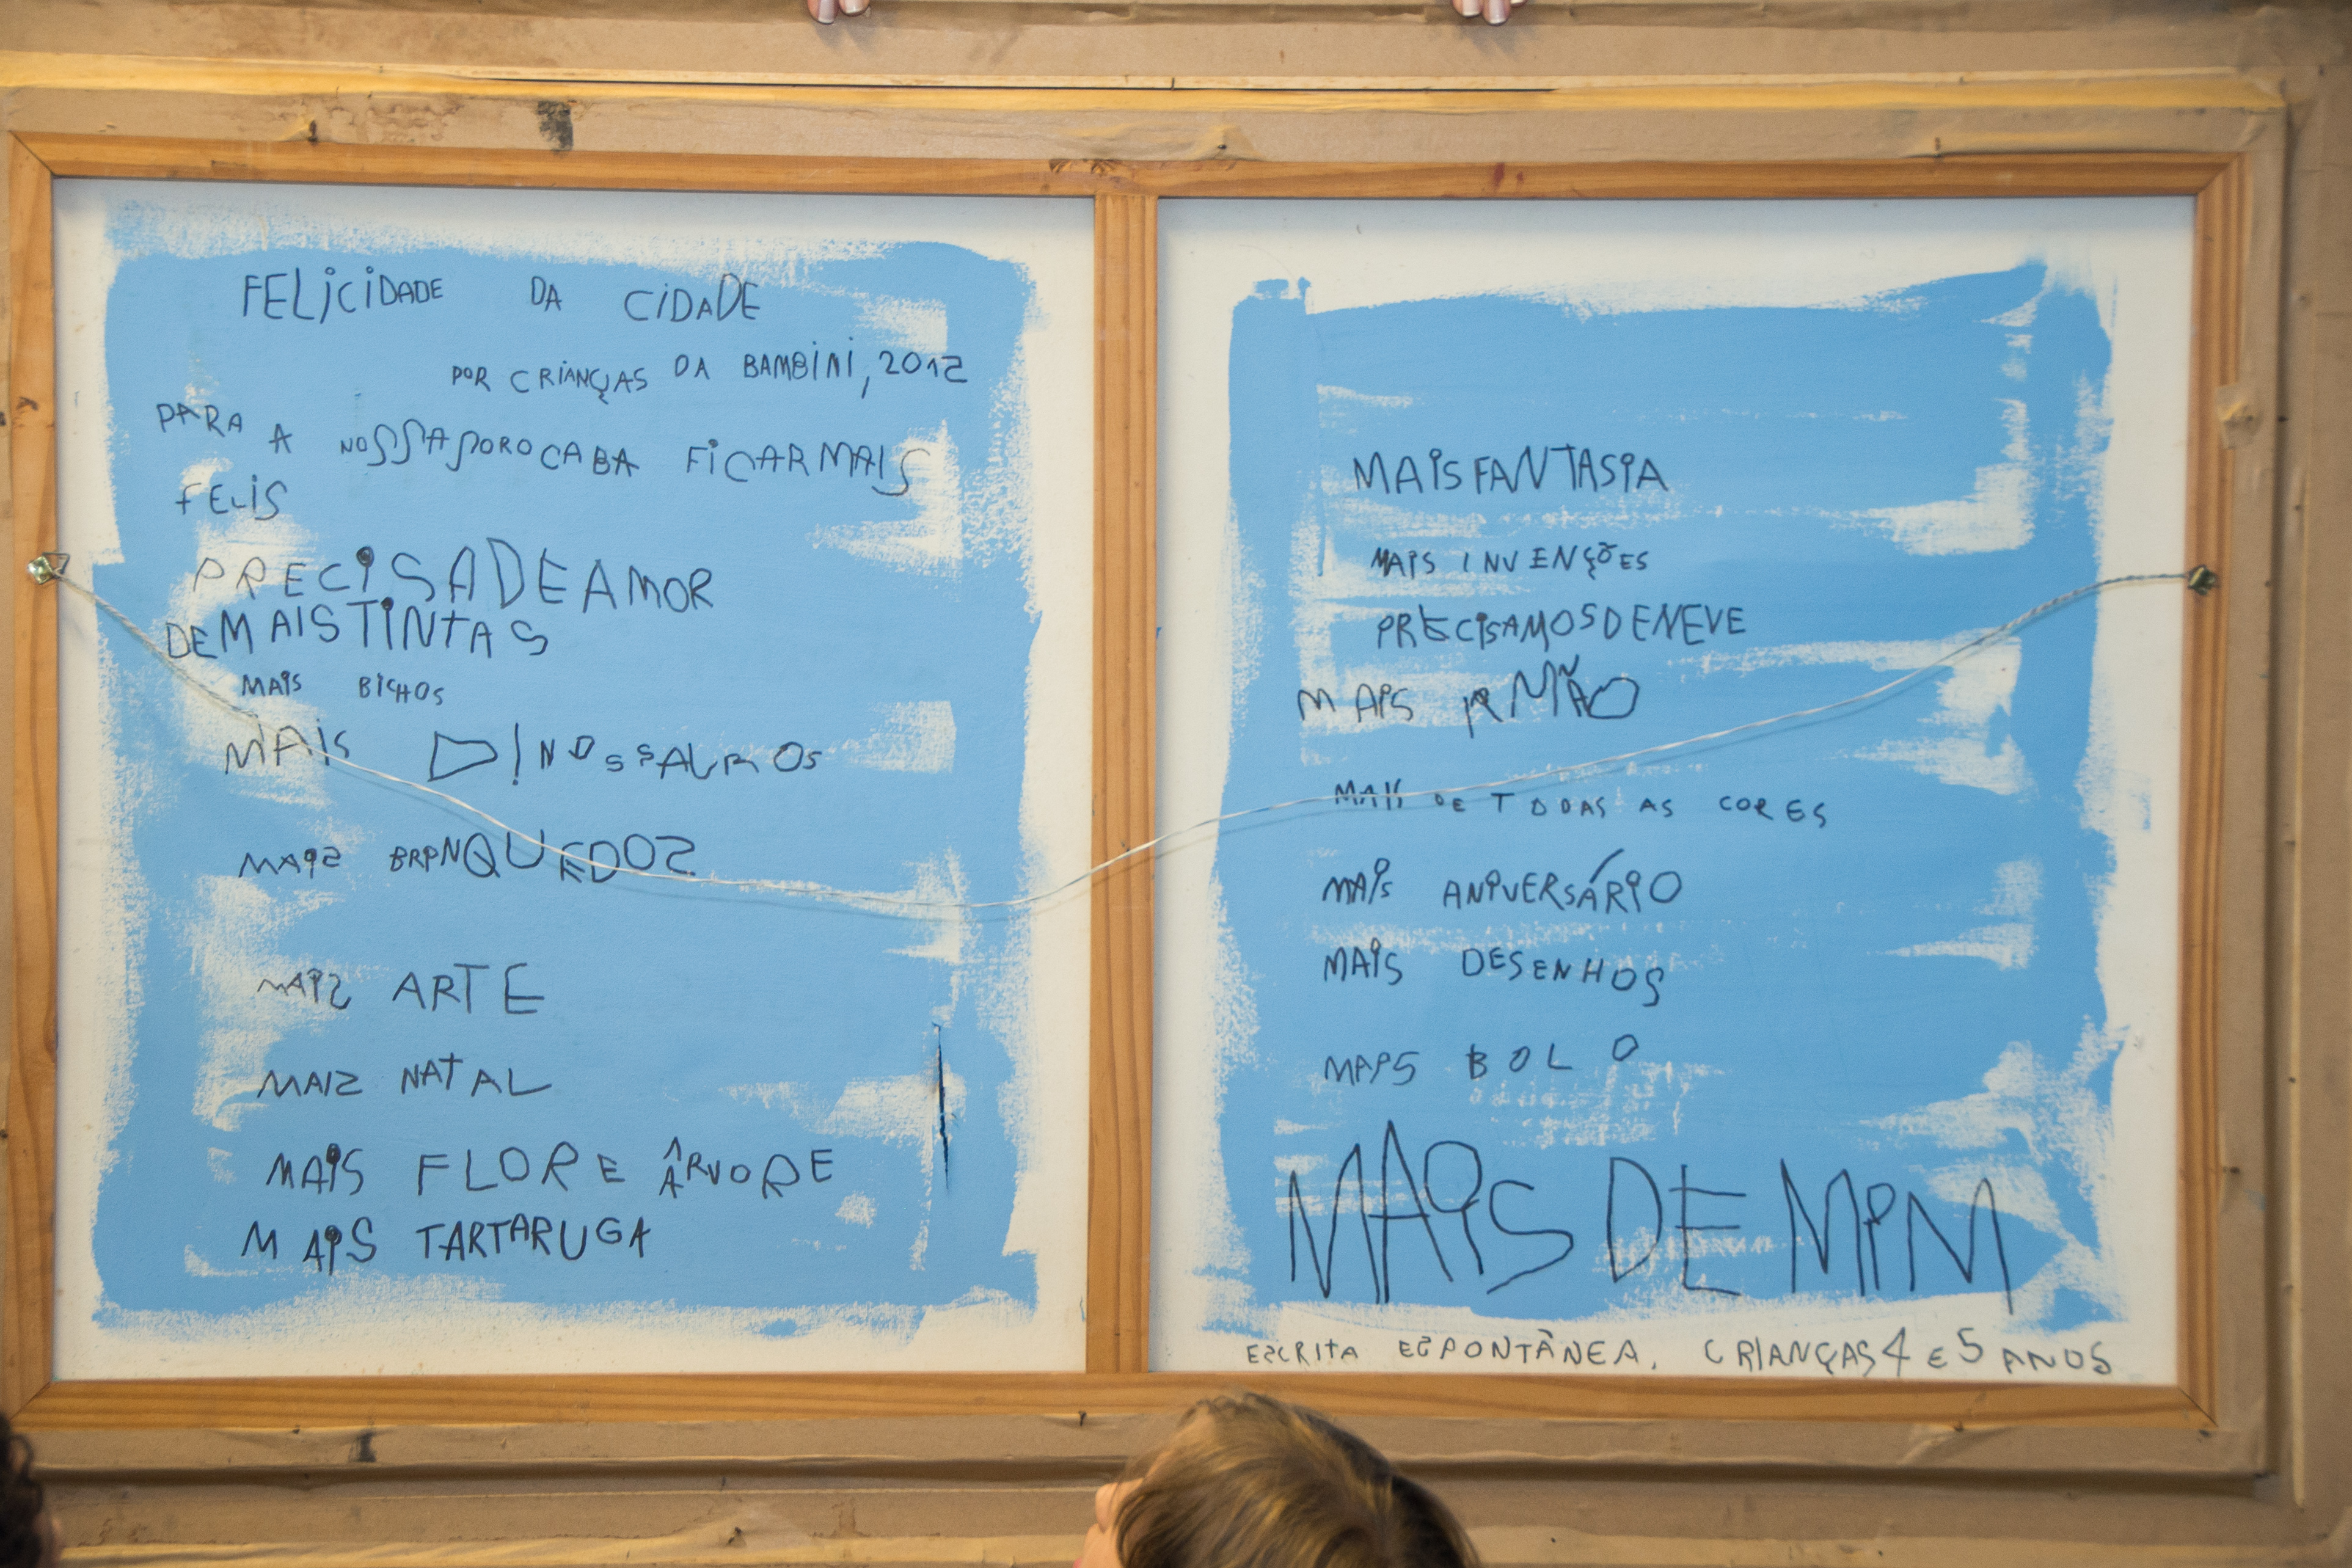 FELICIDADE DA CIDADE
POR CRIANÇAS DA BAMBINI, 2012
PARA A NOSSA SOROCABA FICAR MAIS
FELIS
PRECISA DE AMOR
DE MAIS TINTAS
MAIS BICHOS
MAIS DINOSSAUROS
MAIS BRINQUEDOS
MAIS ARTE
MAIS NATAL
MAIS FLOR E ÁRVORE
MAIS TARTARUGA
MAIS FANTASIA
MAIS INVENÇÕES
PRECISAMOS DE NEVE
MAIS IRMÃO
MAIS DE TODAS AS CORES
MAIS ANIVERSÁRIO
MAIS DESENHOS
MAIS BOLO
MAIS DE MIM
ESCRITA ESPONTÂNEA. CRIANÇAS 4 E 5 ANOS